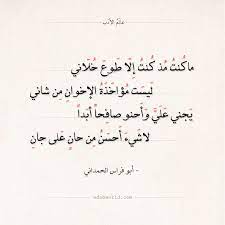 عالم الأدب
ما كنت مذ كنت إلا طوع خلاني
ليست مؤاخذة الإخوان من شاني
يجني علي وأحنو صافحاً أبدا
لا شيء أحسن من حان على جان
- أبو فراس الحمداني -
adabworld.com